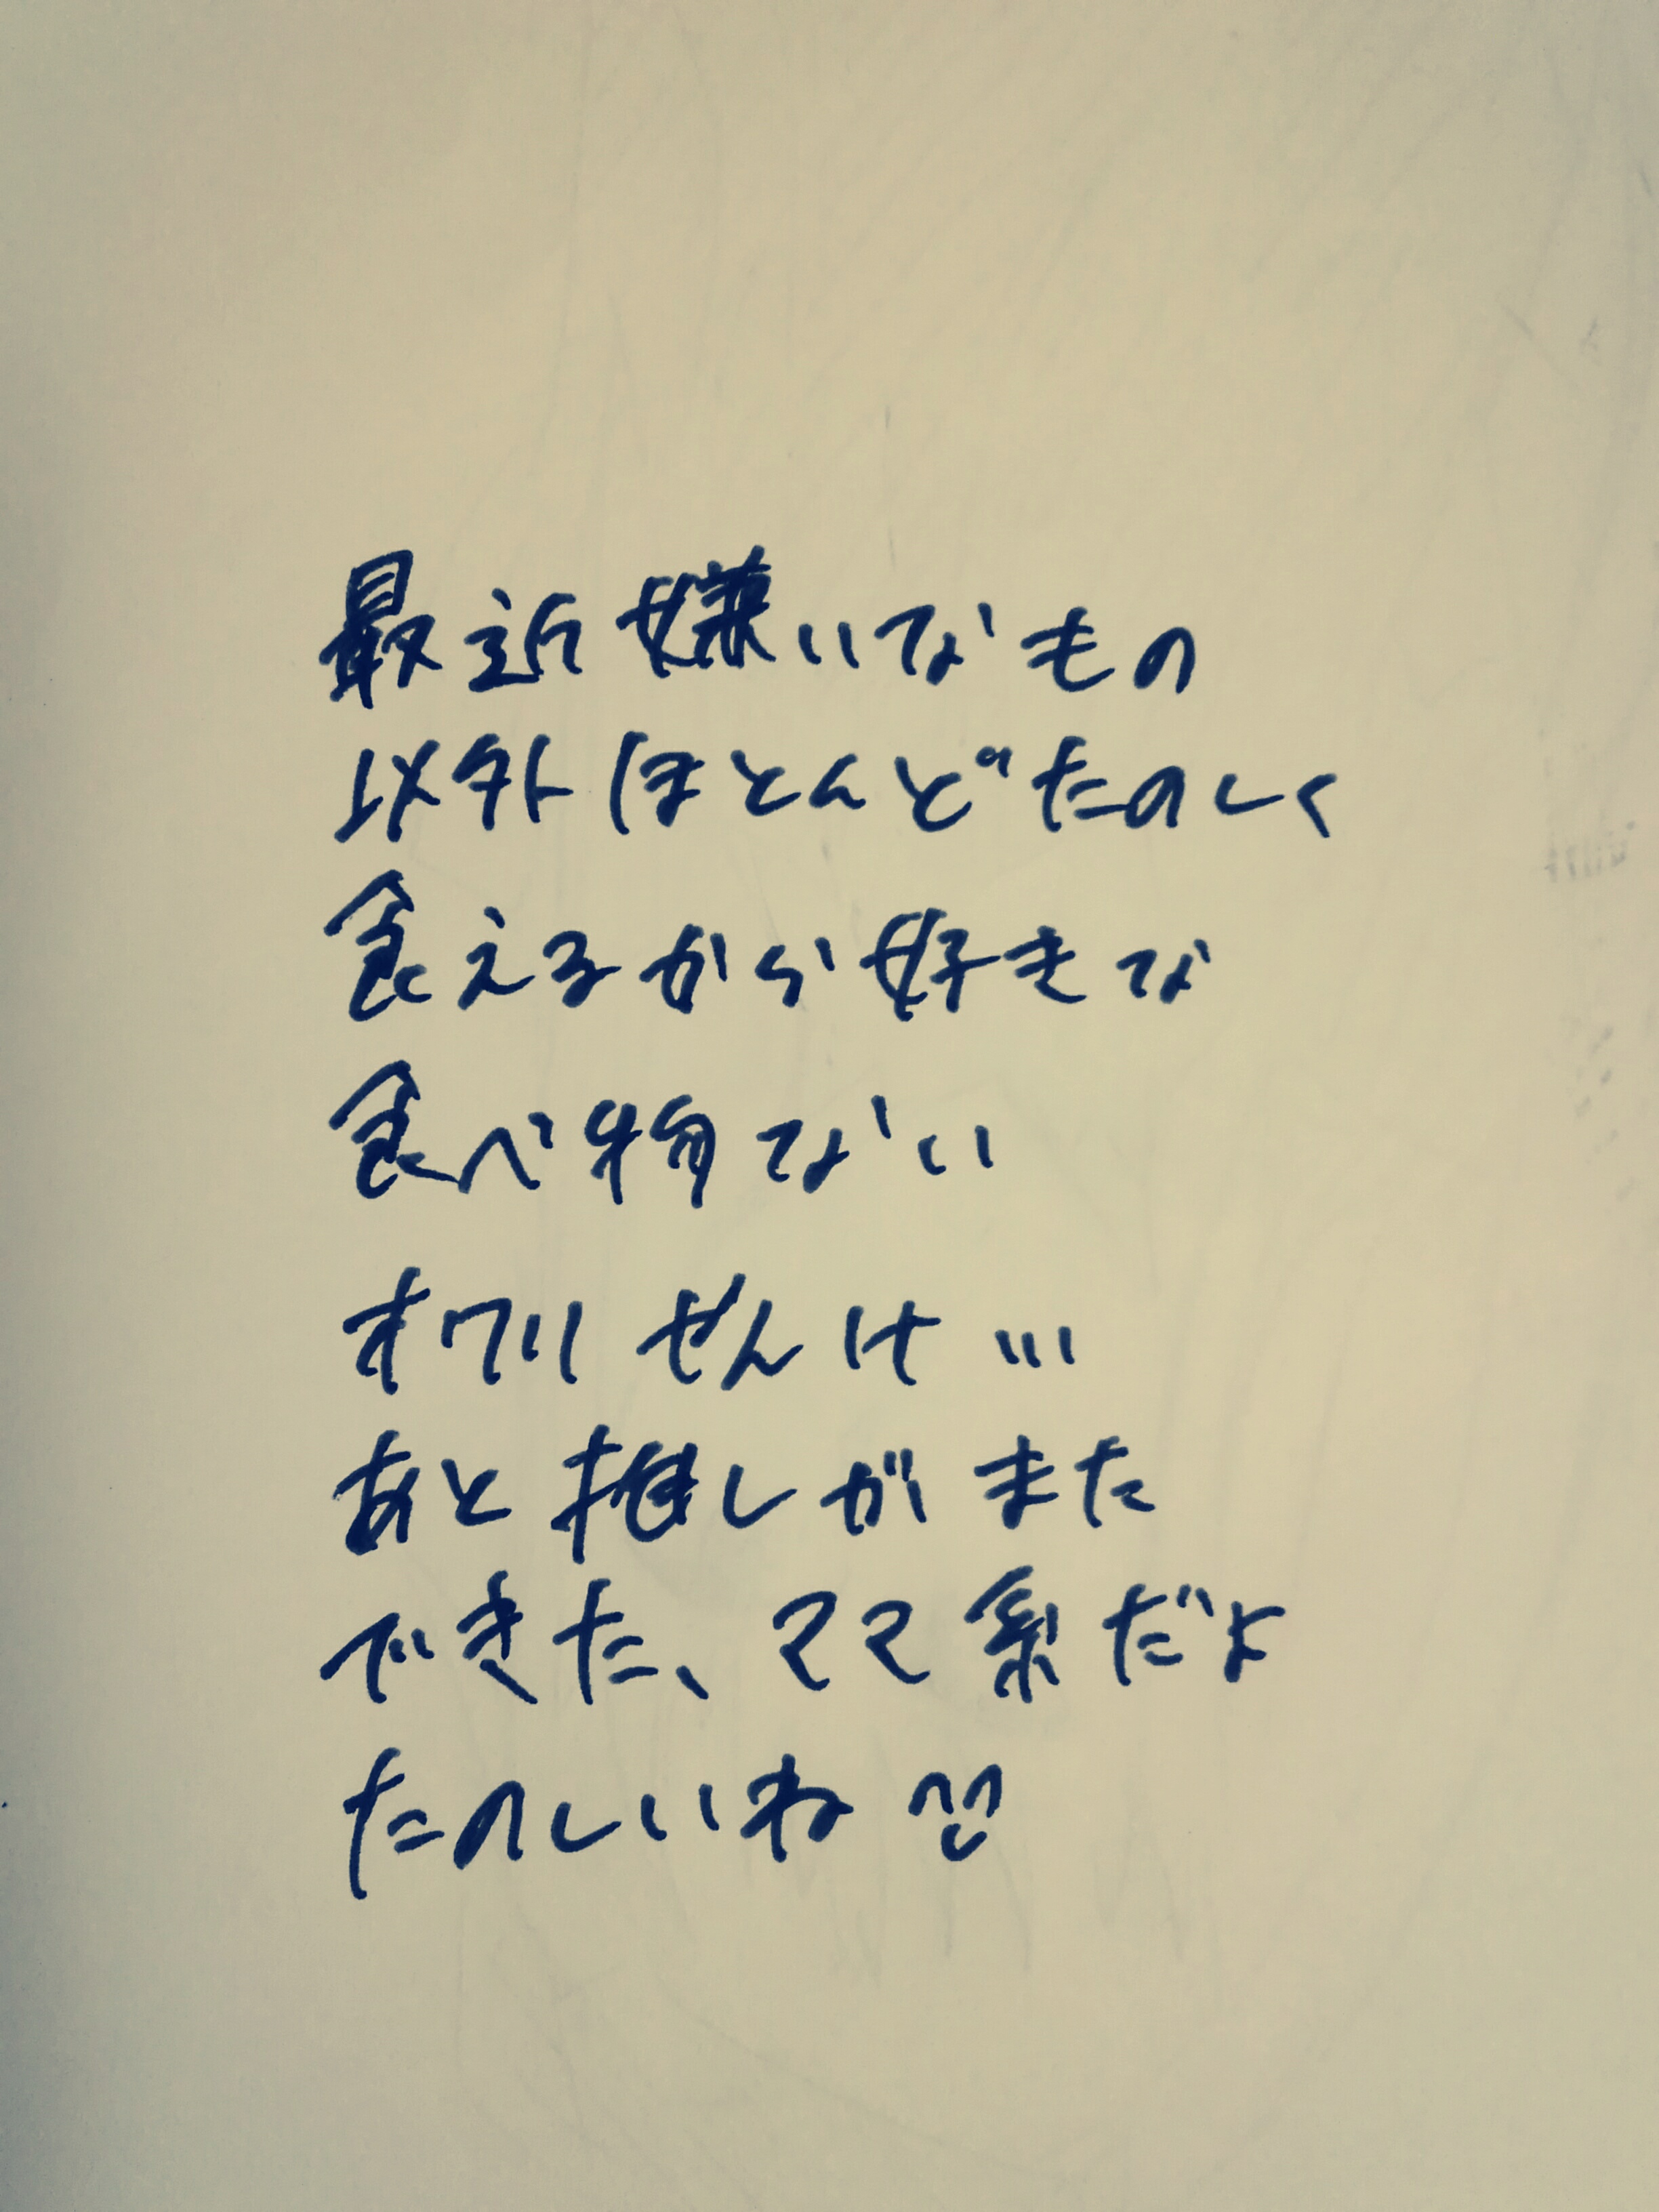 最近嫌いなもの
以外ほとんどたのしく
食えるから好きな
食べ物ない
オワリせんけ…
あと推しがまた
できた、ママ系だよ
たのしいね